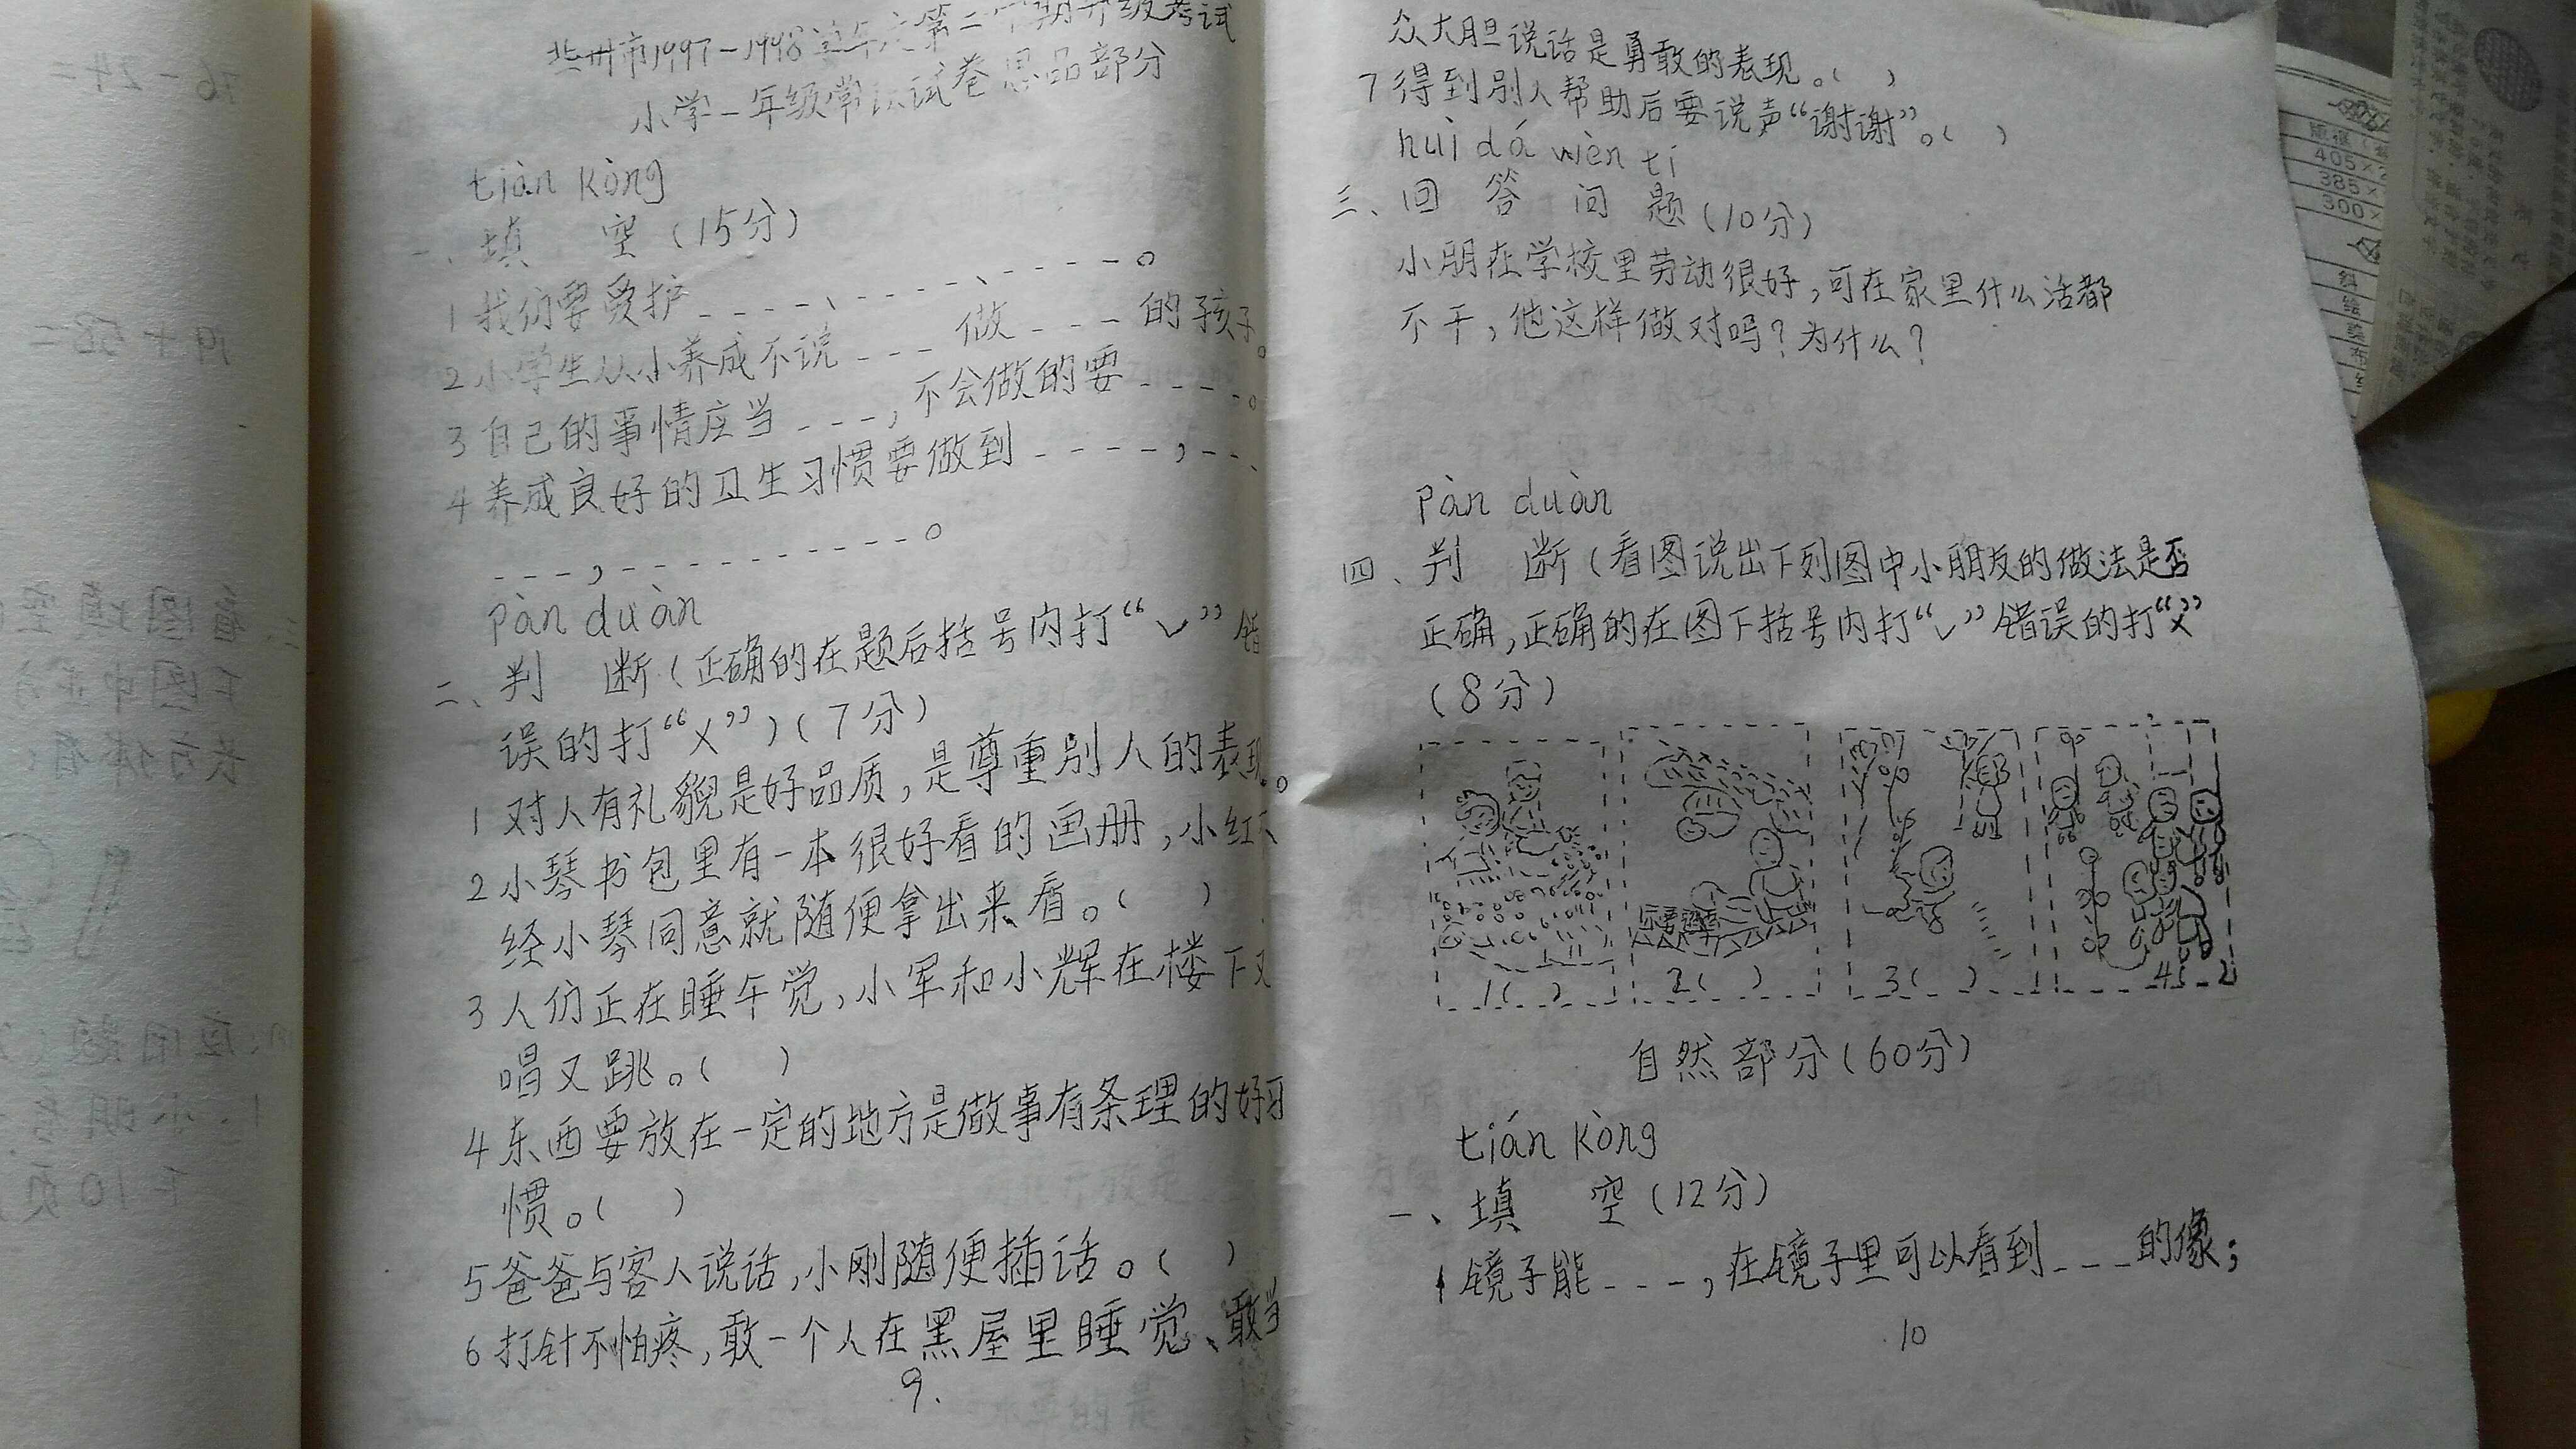 市1997-1998 第二学期升级考试
小学一年级常识试卷思品部分
tián kòng
一、填 空(15分)
1 我们要爱护----、----、----。
2 小学生从小养成不说---做---的孩子。
3 自己的事情应当---,不会做的要----。
4 养成良好的卫生习惯要做到----,--、
---,----------。
pàn duàn
二、判 断(正确的在题后括号内打“√”错
误的打“×”)(7分)
1 对人有礼貌是好品质,是尊重别人的表现。
2 小琴书包里有一本很好看的画册,小红
经小琴同意就随便拿出来看。( )
3 人们正在睡午觉,小军和小辉在楼下又
唱又跳。( )
4 东西要放在一定的地方是做事有条理的好习
惯。( )
5 爸爸与客人说话,小刚随便插话。( )
6 打针不怕疼,敢一个人在黑屋里睡觉、敢当
9.
众大胆说话是勇敢的表现。( )
7 得到别人帮助后要说声“谢谢”。( )
huì dá wèn tí
三、回 答 问 题(10分)
小朋在学校里劳动很好,可在家里什么活都
不干,他这样做对吗?为什么?
pàn duàn
四、判 断(看图说出下列图中小朋友的做法是否
正确,正确的在图下括号内打“√”错误的打“×”
(8分)
1( ) 2( ) 3( ) 4( )
自然部分(60分)
tián kòng
一、填 空(12分)
1 镜子能---,在镜子里可以看到---的像;
10
405×
385×
300×